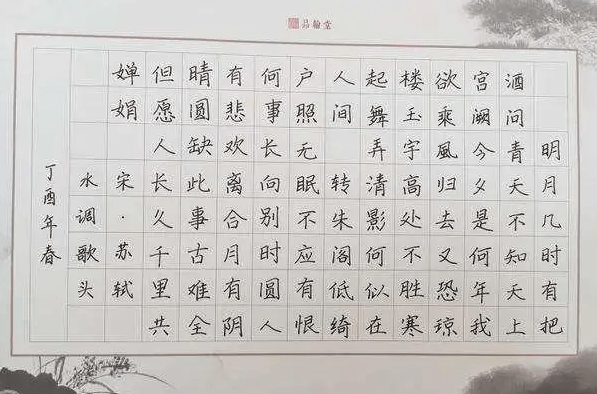 品翰堂
明月几时有把
酒问青天不知天上
宫阙今夕是何年我
欲乘風归去又恐琼
楼玉宇高处不胜寒
起舞弄清影何似在
人间 转朱阁低绮
户照无眠不应有恨
何事长向别时圆人
有悲欢离合月有阴
晴圆缺此事古难全
但愿人长久千里共
婵娟 宋·苏轼
水调歌头
丁酉年春